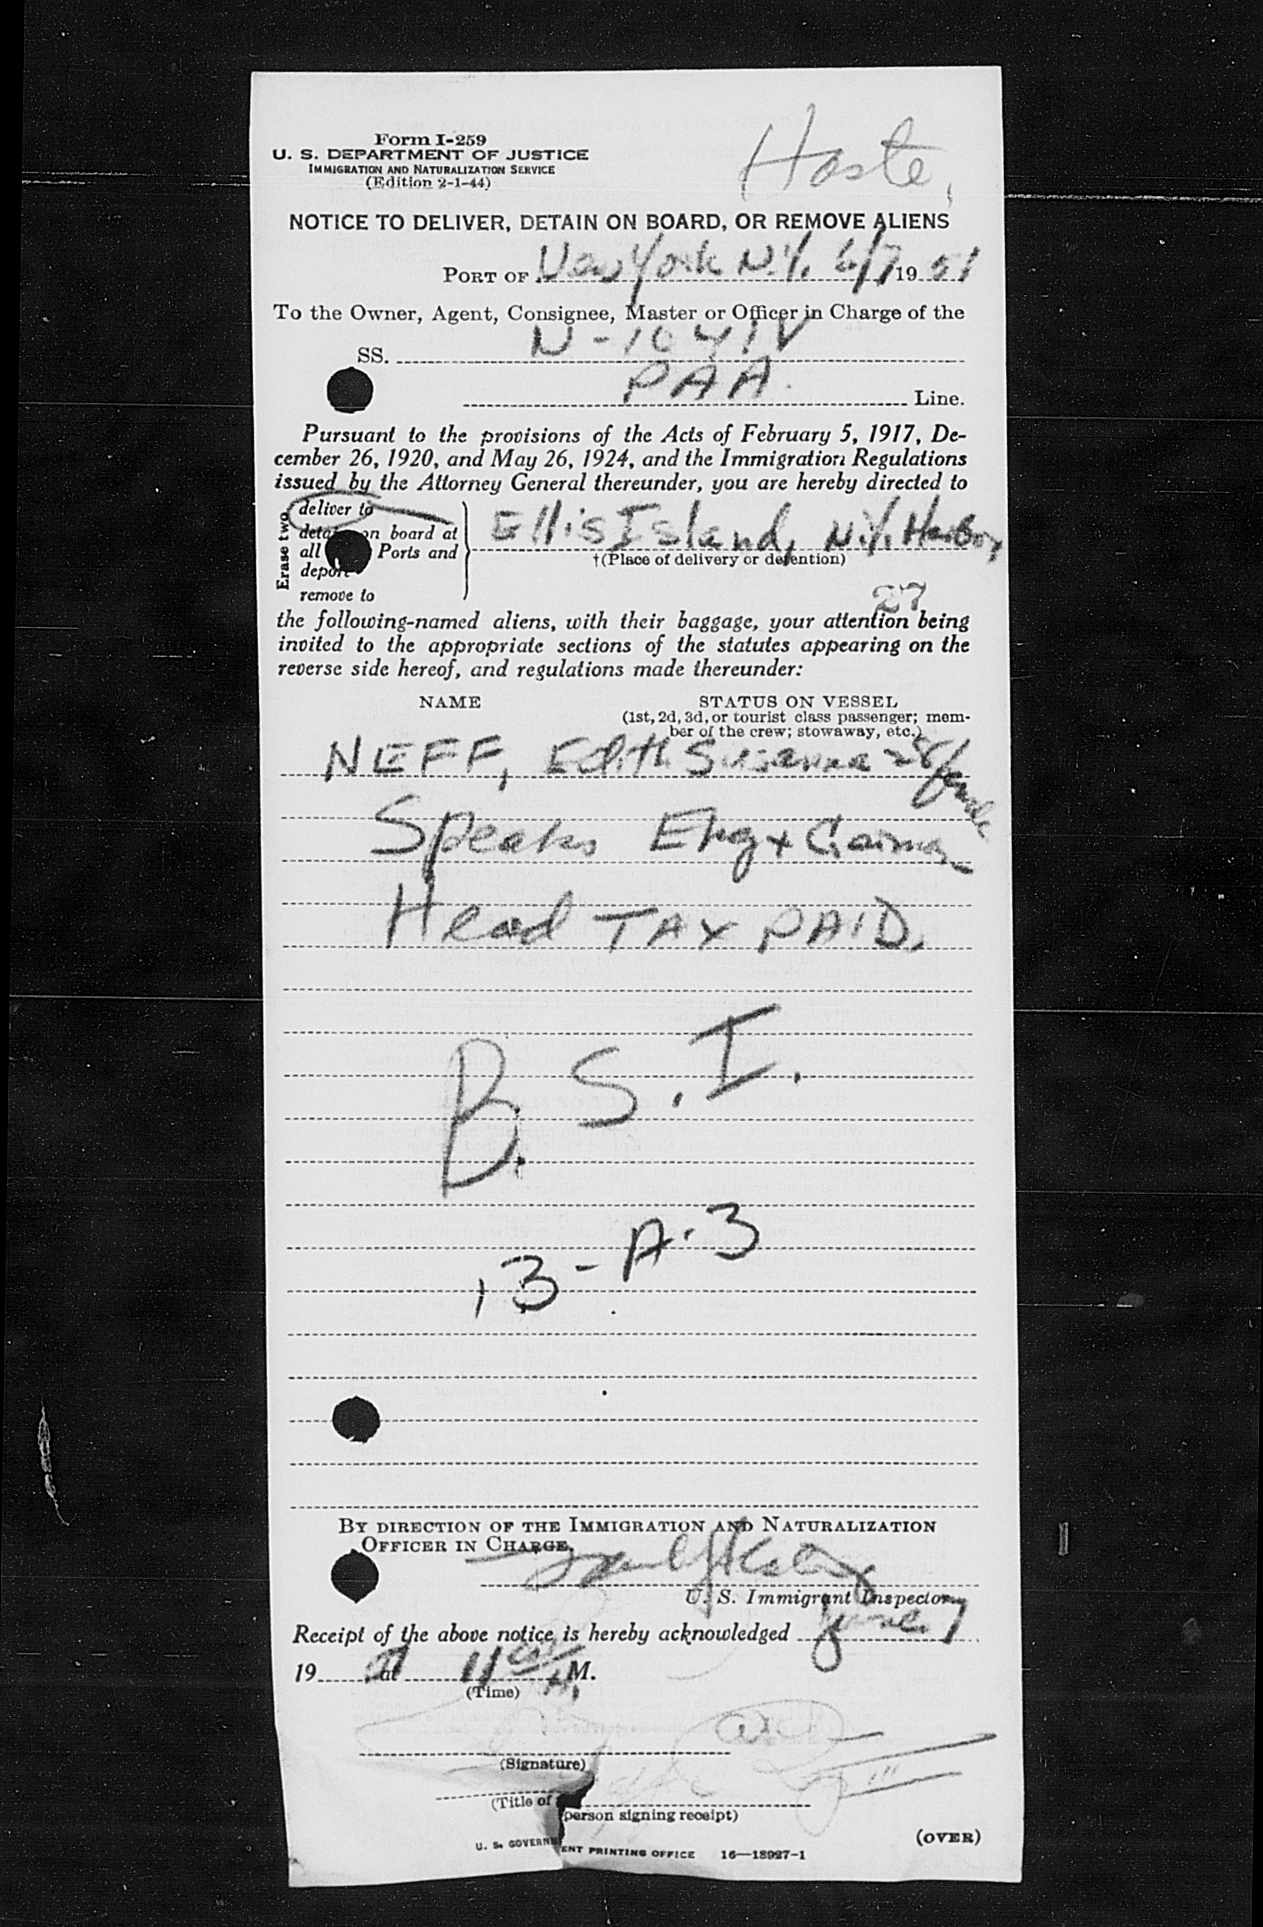 Form I-259
U. S. DEPARTMENT OF JUSTICE
IMMIGRATION AND NATURALIZATION SERVICE
(Edition 2-1-44)
Haste,
NOTICE TO DELIVER, DETAIN ON BOARD, OR REMOVE ALIENS
PORT OF New York N.Y. 6/7 19 51
To the Owner, Agent, Consignee, Master or Officer in Charge of the
SS. N-1041V
PAA Line.
Pursuant to the provisions of the Acts of February 5, 1917, De-
cember 26, 1920, and May 26, 1924, and the Immigration Regulations
issued by the Attorney General thereunder, you are hereby directed to
Erase two
deliver to
on board at
all Ports and
remove to
Ellis Island, N.Y. Harbor
†(Place of delivery or detention)
27
the following-named aliens, with their baggage, your attention being
invited to the appropriate sections of the statutes appearing on the
reverse side hereof, and regulations made thereunder:
NAME STATUS ON VESSEL
(1st, 2d, 3d, or tourist class passenger; mem-
ber of the crew; stowaway, etc.)
NEFF, Edith Susanna 28/female
Speaks Eng + German
Head TAX PAID.
B. S. I.
13-A-3
BY DIRECTION OF THE IMMIGRATION AND NATURALIZATION
OFFICER IN CHARGE.
U. S. Immigrant Inspector
Receipt of the above notice is hereby acknowledged June 7
19 at 11 M.
(Time)
(Signature)
(Title of person signing receipt)
(OVER)
U. S. GOVERNMENT PRINTING OFFICE 16—18927-1